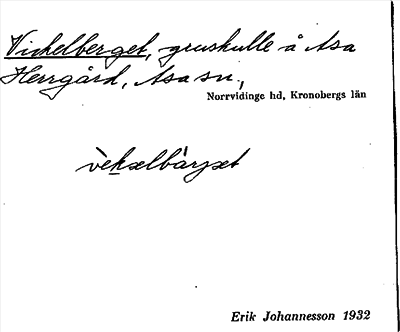 Vickelberget, gruskulle å Asa
Herrgård, Asa sn.,
Norrvidinge hd, Kronobergs län
vèkəlbárɡət
Erik Johannesson 1932